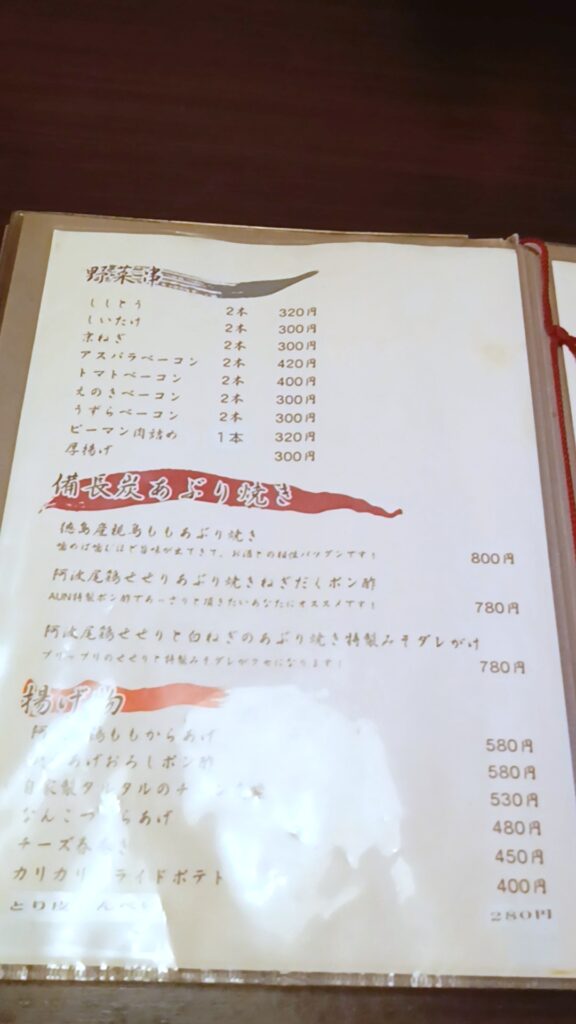 野菜串
ししとう 2本 320円
しいたけ 2本 300円
京ねぎ 2本 300円
アスパラベーコン 2本 420円
トマトベーコン 2本 400円
えのきベーコン 2本 300円
うずらベーコン 2本 300円
ピーマン肉詰め 1本 320円
厚揚げ 300円
備長炭あぶり焼き
徳島産親鳥ももあぶり焼き
噛めば噛むほど旨味が出てきて、お酒との相性バツグンです! 800円
阿波尾鶏せせりあぶり焼きねぎだくポン酢
AUN特製ポン酢であっさりと頂きたいあなたにオススメです! 780円
阿波尾鶏せせりと白ねぎのあぶり焼き特製みそダレがけ
プリップリのせせりと特製みそダレがクセになります! 780円
揚げ物
阿 鶏ももからあげ 580円
あげおろしポン酢 580円
自家製タルタルのチ 530円
なんこつ らあげ 480円
チーズ春巻き 450円
カリカリ ライドポテト 400円
とり皮 んべい 280円